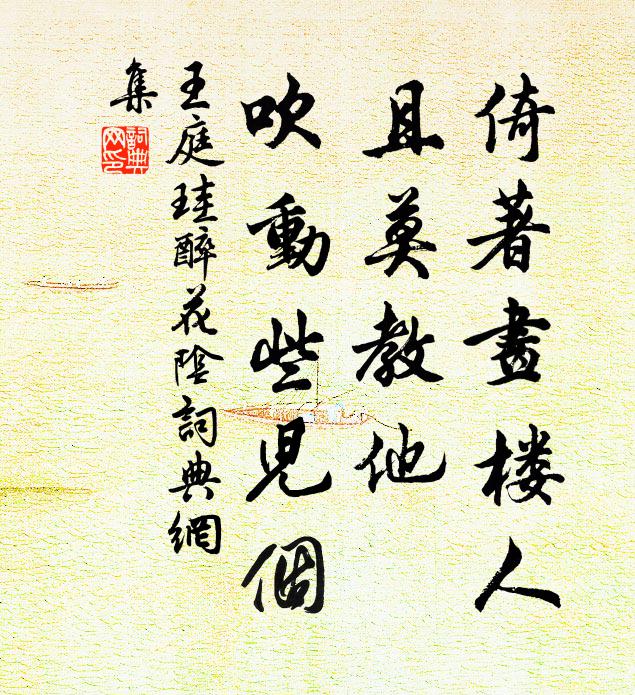 倚著畫楼人
且莫教他
吹動些兒個
王庭珪醉花陰詞典網
集
詞典
网印